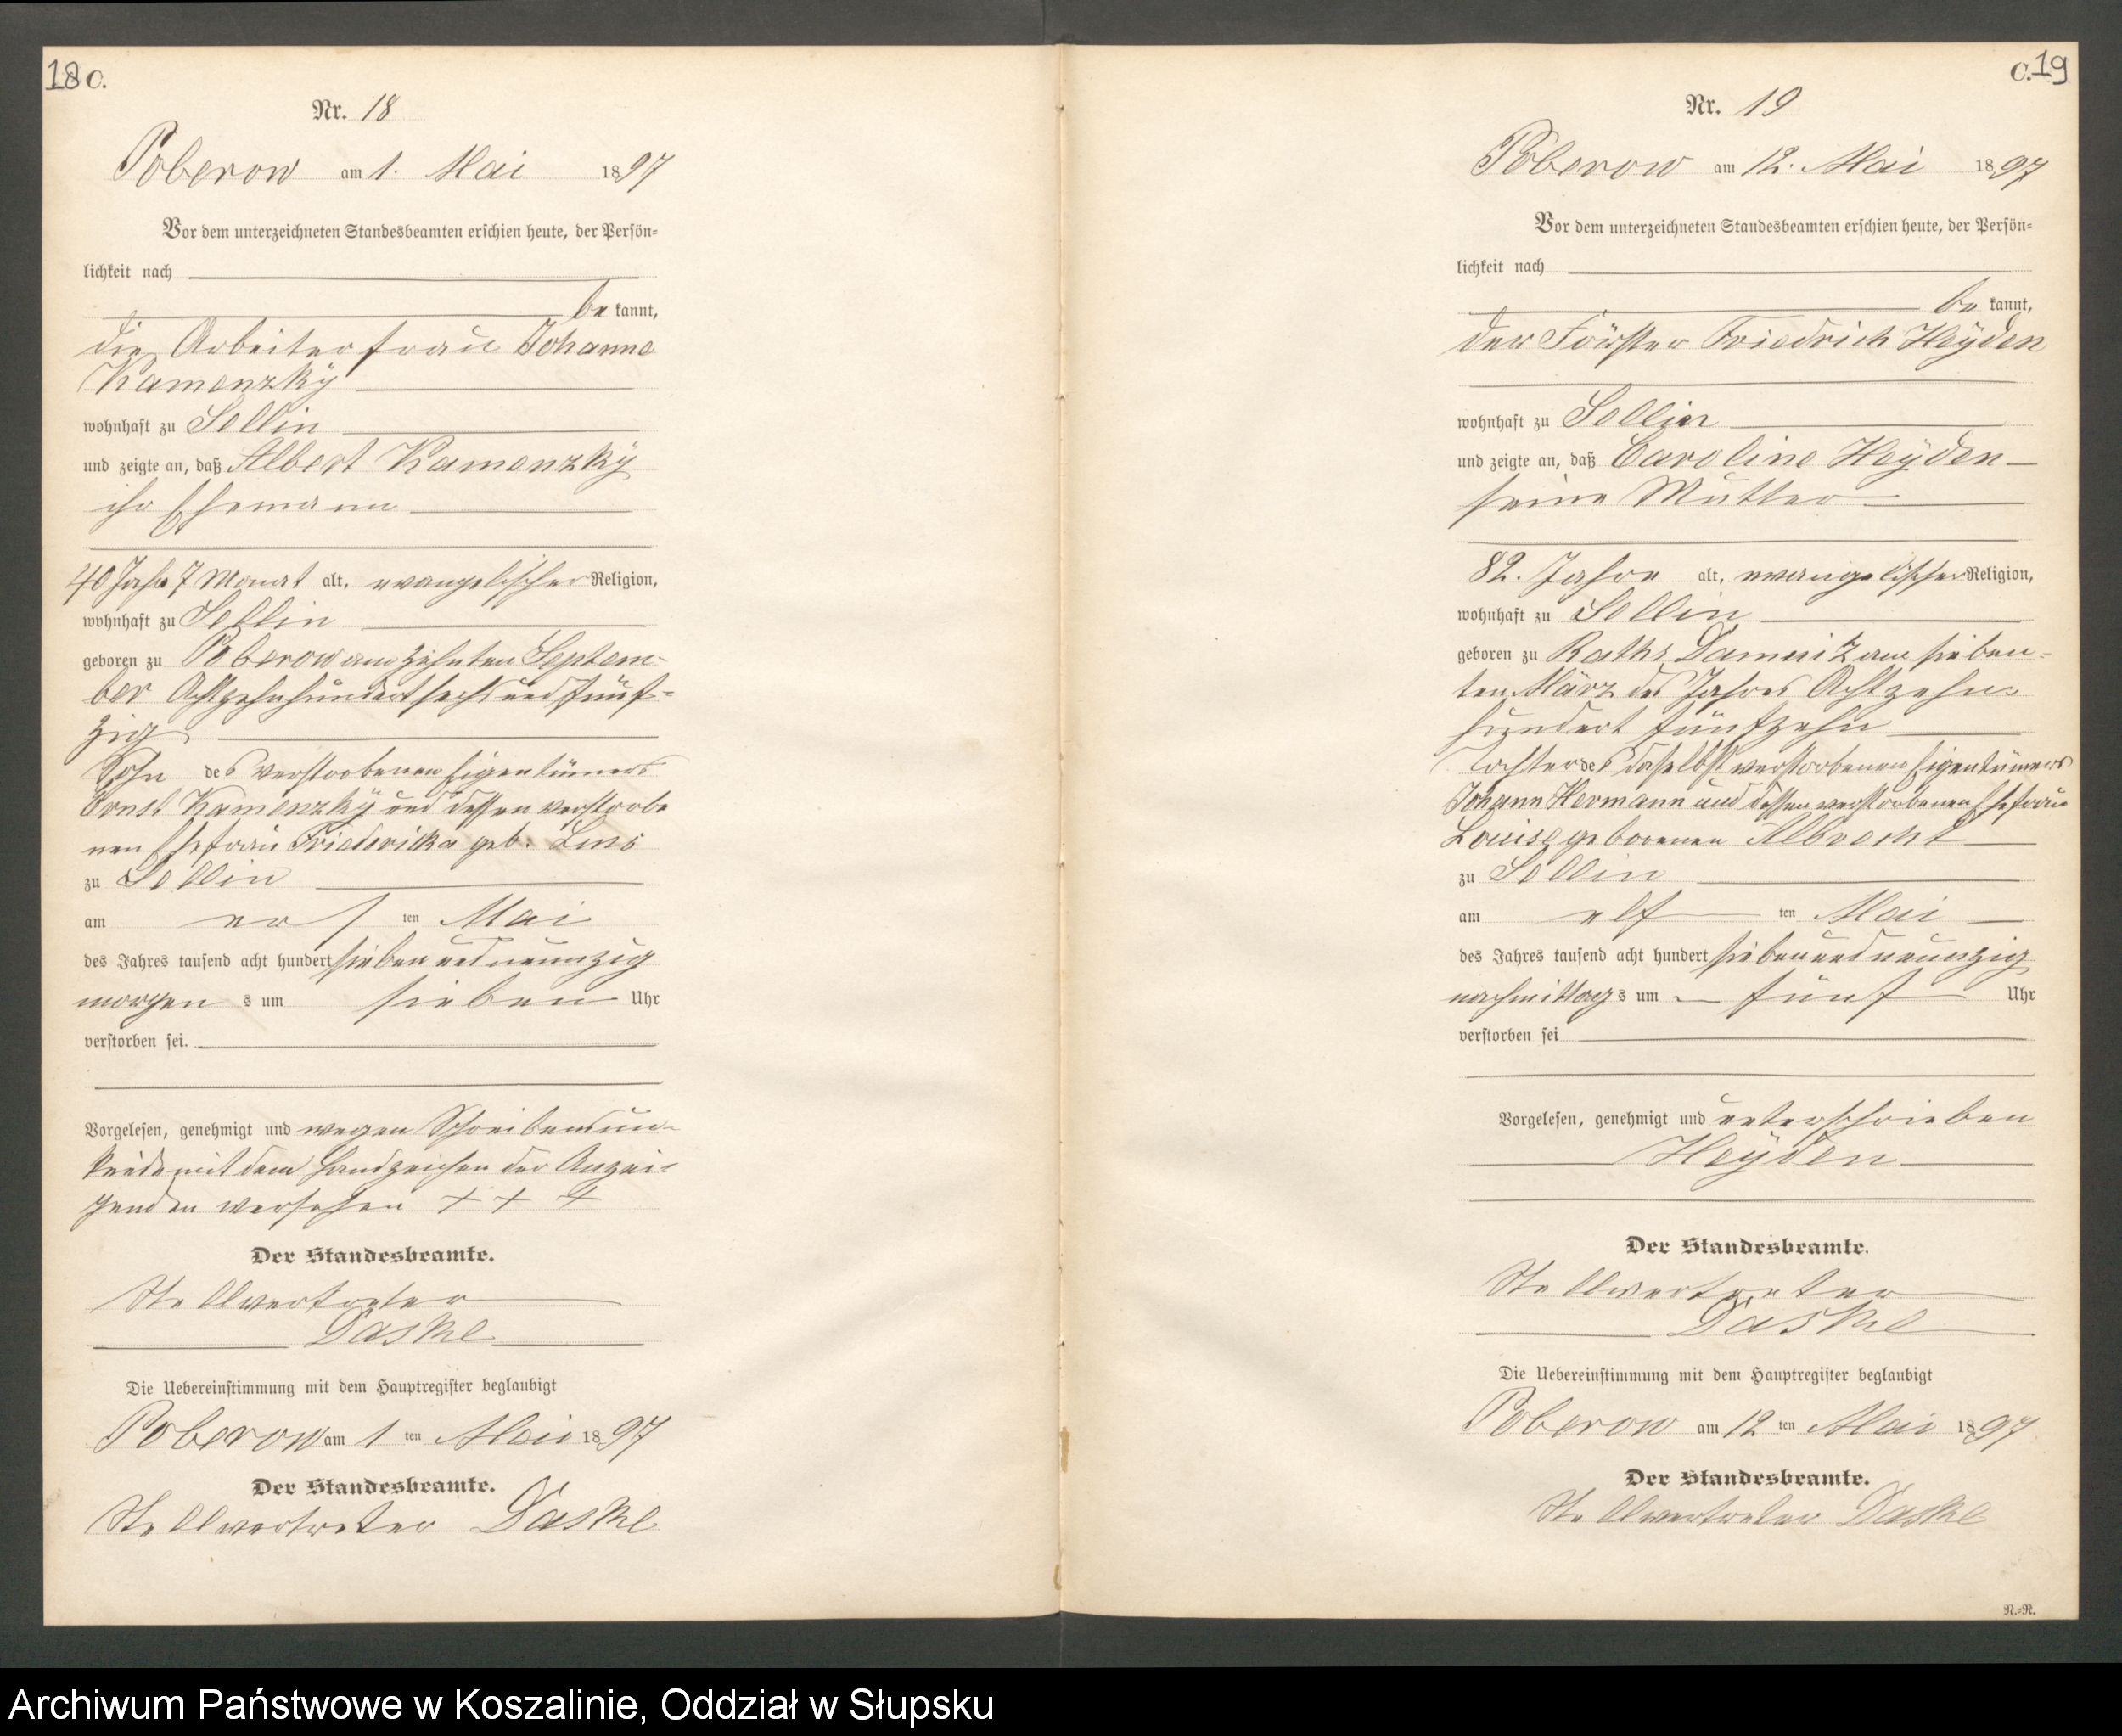 18 C.
Nr. 18
Poberow am 1. Mai 1897
Vor dem unterzeichneten Standesbeamten erschien heute, der Persön-
lichkeit nach
be kannt,
die Arbeiterfrau Johanne
Kamenzky
wohnhaft zu Sellin
und zeigte an, daß Albert Kamenzky
ihr Ehemann
40 Jahr 7 Monat alt, evangelischer Religion,
wohnhaft zu Sellin
geboren zu Poberow am zehnten Septem-
ber Achtzehnhundert sechs und fünf-
zig
Sohn des verstorbenen Eigentümers
Ernst Kamenzky und dessen verstorbe
nen Ehefrau Friedericka geb.
zu Sellin
am ers ten Mai
des Jahres tausend acht hundert sieben und neunzig
morgen s um sieben Uhr
verstorben sei.
Vorgelesen, genehmigt und wegen Schreibensun-
kunde mit dem Handzeichen der Anzei-
genden versehen + + +
Der Standesbeamte.
Stellvertreter
Daske
Die Uebereinstimmung mit dem Hauptregister beglaubigt
Poberow am 1 ten Mai 1897
Der Standesbeamte.
Stellvertreter Daske
C. 19
Nr. 19
Poberow am 12. Mai 1897
Vor dem unterzeichneten Standesbeamten erschien heute, der Persön-
lichkeit nach
be kannt,
der Förster Friedrich Heyden
wohnhaft zu Sellin
und zeigte an, daß Caroline Heyden
seine Mutter
82. Jahre alt, evangelischer Religion,
wohnhaft zu Sellin
geboren zu Raths Damnitz am sieben-
ten März des Jahres Achtzehn-
hundert fünfzehn
Tochter des daselbst verstorbenen Eigentümers
Johann Hermann und dessen verstorbenen Ehefrau
Louise geborenen Albrecht
zu Sellin
am elf ten Mai
des Jahres tausend acht hundert sieben und neunzig
nachmittag s um fünf Uhr
verstorben sei
Vorgelesen, genehmigt und unterschrieben
Heyden
Der Standesbeamte.
Stellvertreter
Daske
Die Uebereinstimmung mit dem Hauptregister beglaubigt
Poberow am 12 ten Mai 1897
Der Standesbeamte.
Stellvertreter Daske
N.=N.
Archiwum Państwowe w Koszalinie, Oddział w Słupsku